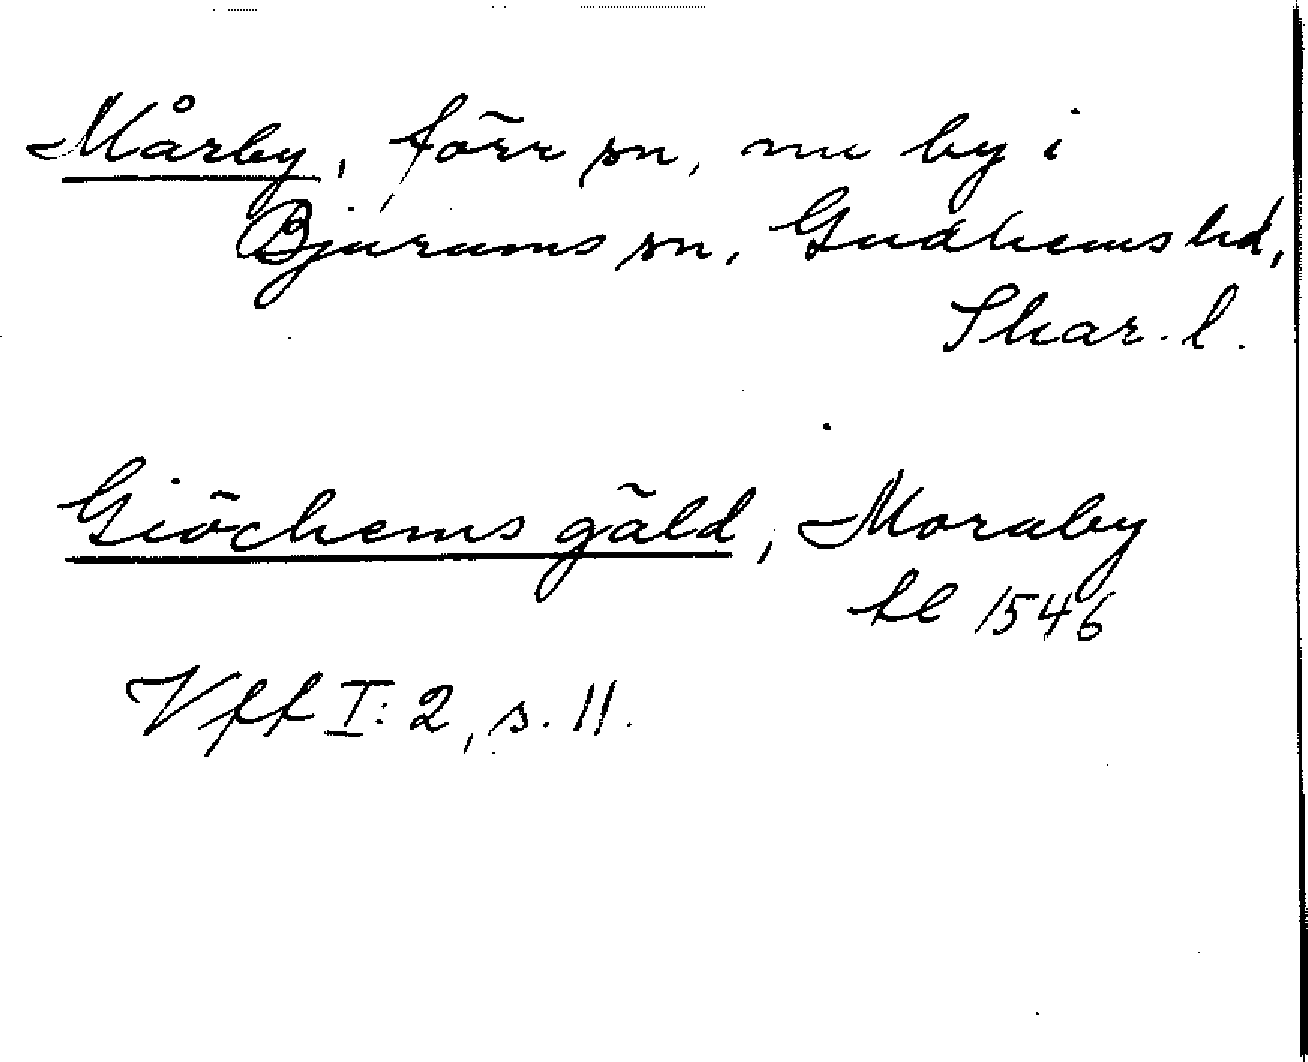 Mårby, förr sn, nu by i
Bjurums sn, Gudhems hd,
Skar. l.
Giöckems gäld, Moraby
kl 1546
Vff I: 2, s. 11.